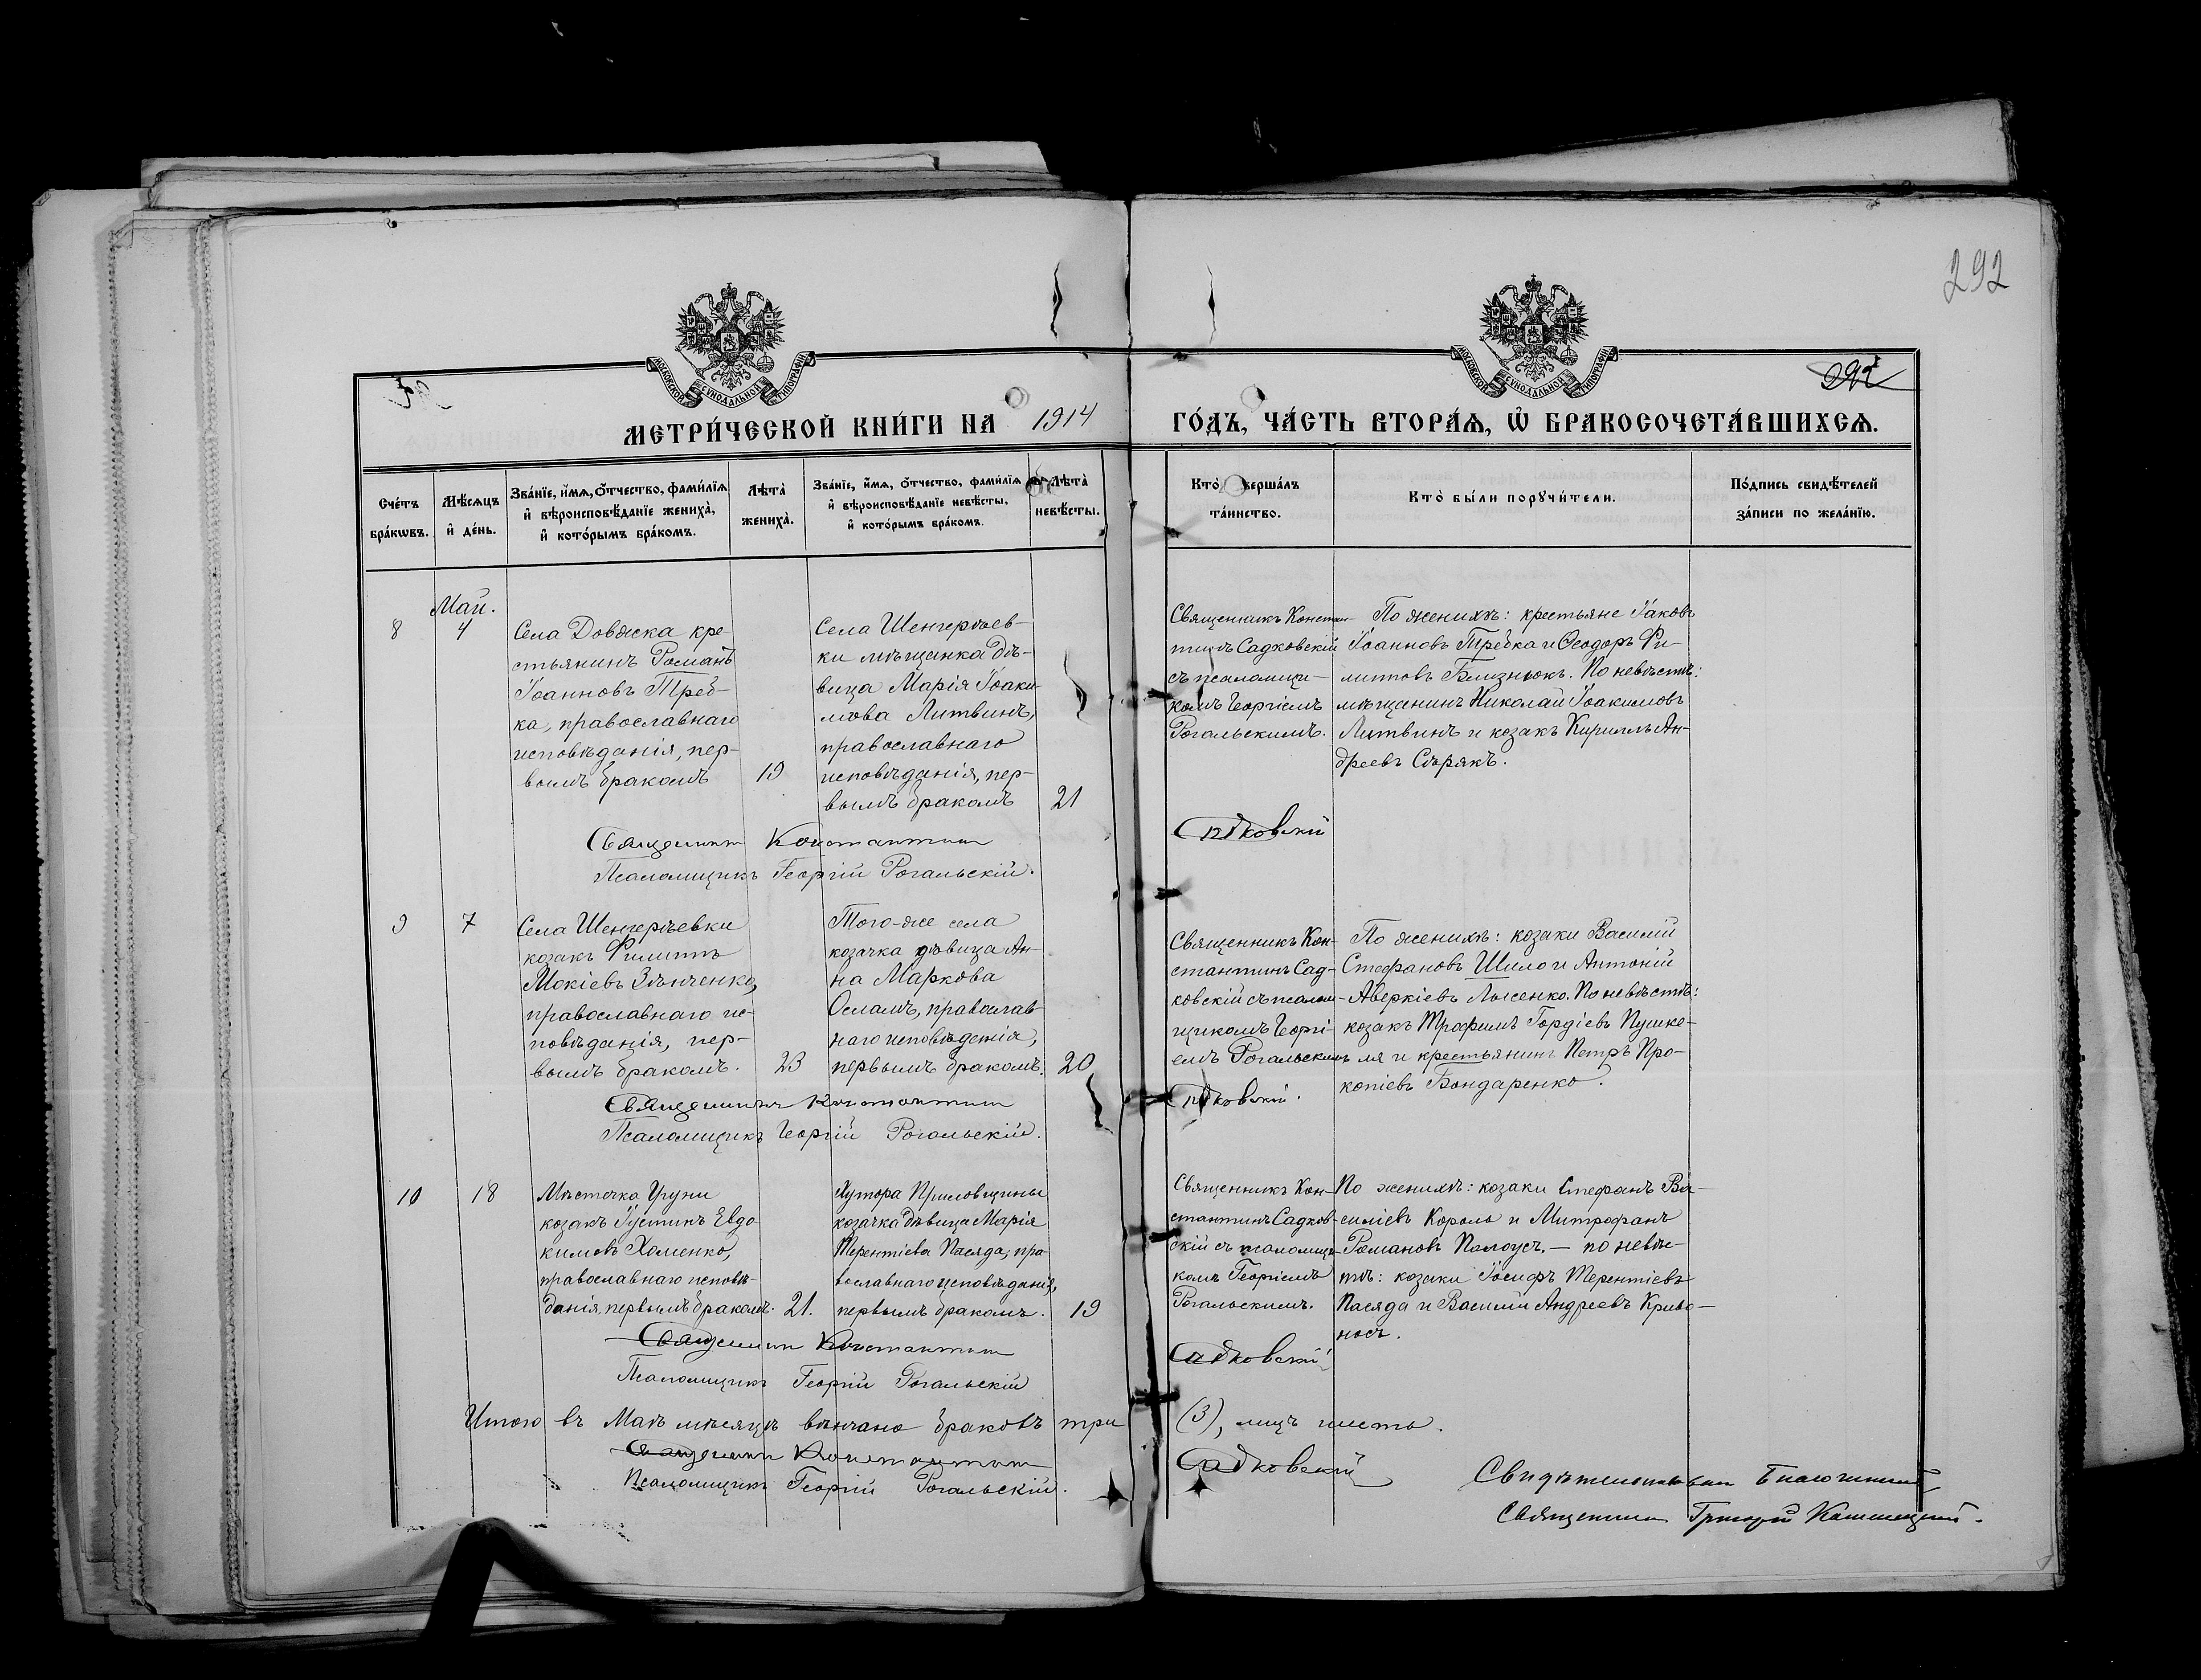 292
МОСКОВСКОЙ СѴНОДАЛЬНОЙ ТИПОГРАФІИ
МОСКОВСКОЙ СѴНОДАЛЬНОЙ ТИПОГРАФІИ
МЕТРИ́ЧЕСКОЙ КНИ́ГИ НА 1914 ГО́ДЪ, ЧА́СТЬ ВТОРА́Ѧ, Ѽ БРАКОСОЧЕТА́ВШИХСѦ.
Сче́тъ
бра́кѡвъ.
Мѣ́сяцъ
и҆ де́нь.
Зва́нїе, и҆́мѧ, ѻ҆́тчество, фами́лїѧ
и҆ вѣроисповѣ́данїе жениха̀,
и҆ кото́рымъ бра́комъ.
Лѣта̀
жениха̀.
Зва́нїе, и҆́мѧ, ѻ҆́тчество, фами́лїѧ
и҆ вѣроисповѣ́данїе невѣ́сты,
и҆ кото́рымъ бра́комъ.
Лѣта̀
невѣ́сты.
Кто̀ вершалъ
та́инство.
Кто̀ бы́ли порꙋчи́тели.
По́дпись свидѣ́телей
за́писи по жела́нїю.
Май.
8
4
Села Довжека кре-
стьянинъ Романъ
Іоанновъ Треб-
ка, православнаго
исповѣданія, пер-
вымъ бракомъ
19
Села Шенгерѣев-
ки мѣщанка дѣ-
вица Марія Іоаки-
мова Литвинъ,
православнаго
исповѣданія, пер-
вымъ бракомъ
21
Священникъ Констан-
тинъ Садковскій
съ псаломщи-
комъ Георгіемъ
Рогальскимъ.
По женихѣ: крестьяне Іаковъ
Іоанновъ Требка и Ѳеодоръ Фи-
липповъ Близнюкъ. По невѣстѣ:
мѣщанинъ Николай Іоакимовъ
Литвинъ и козакъ Кириллъ Ан-
дреевъ Сѣрякъ.
Священникъ Константинъ Садковскій
Псаломщикъ Георгій Рогальскій.
9
7
Села Шенгерѣевки
козакъ Филиппъ
Мокіевъ Зѣнченко,
православнаго ис-
повѣданія, пер-
вымъ бракомъ.
23
Того-же села
козачка дѣвица Ан-
на Маркова
Осламъ, православ-
наго исповѣданія,
первымъ бракомъ.
20
Священникъ Кон-
стантинъ Сад-
ковскій съ псалом-
щикомъ Георгі-
емъ Рогальскимъ
По женихѣ: козаки Василій
Стефановъ Шило и Антоній
Аверкіевъ Лысенко. По невѣстѣ:
козакъ Трофимъ Гордіевъ Пушко-
ля и крестьянинъ Петръ Про-
копіевъ Бондаренко.
Священникъ Константинъ Садковскій.
Псаломщикъ Георгій Рогальскій.
10
18
Мѣстечка Груни
козакъ Іустинъ Евдо-
кимовъ Хоменко,
православнаго исповѣ-
данія, первымъ бракомъ.
21.
Хутора Приловщины
козачка дѣвица Марія
Терентіева Пасяда, пра-
вославнаго исповѣданія,
первымъ бракомъ.
19
Священникъ Кон-
стантинъ Садков-
скій съ псаломщи-
комъ Георгіемъ
Рогальскимъ.
По женихѣ: козаки Стефанъ Ва-
силіевъ Король и Митрофанъ
Романовъ Палоусъ. — по невѣс-
тѣ: козаки Іосифъ Терентіевъ
Пасяда и Василій Андреевъ Криво-
носъ.
Священникъ Константинъ Садковскій
Псаломщикъ Георгій Рогальскій
Итого въ Маѣ мѣсяцѣ вѣнчано браковъ три (3), лицъ шесть.
Священникъ Константинъ Садковскій
Псаломщикъ Георгій Рогальскій.
Свидѣтельствовалъ Благочинный
Священникъ Григорій